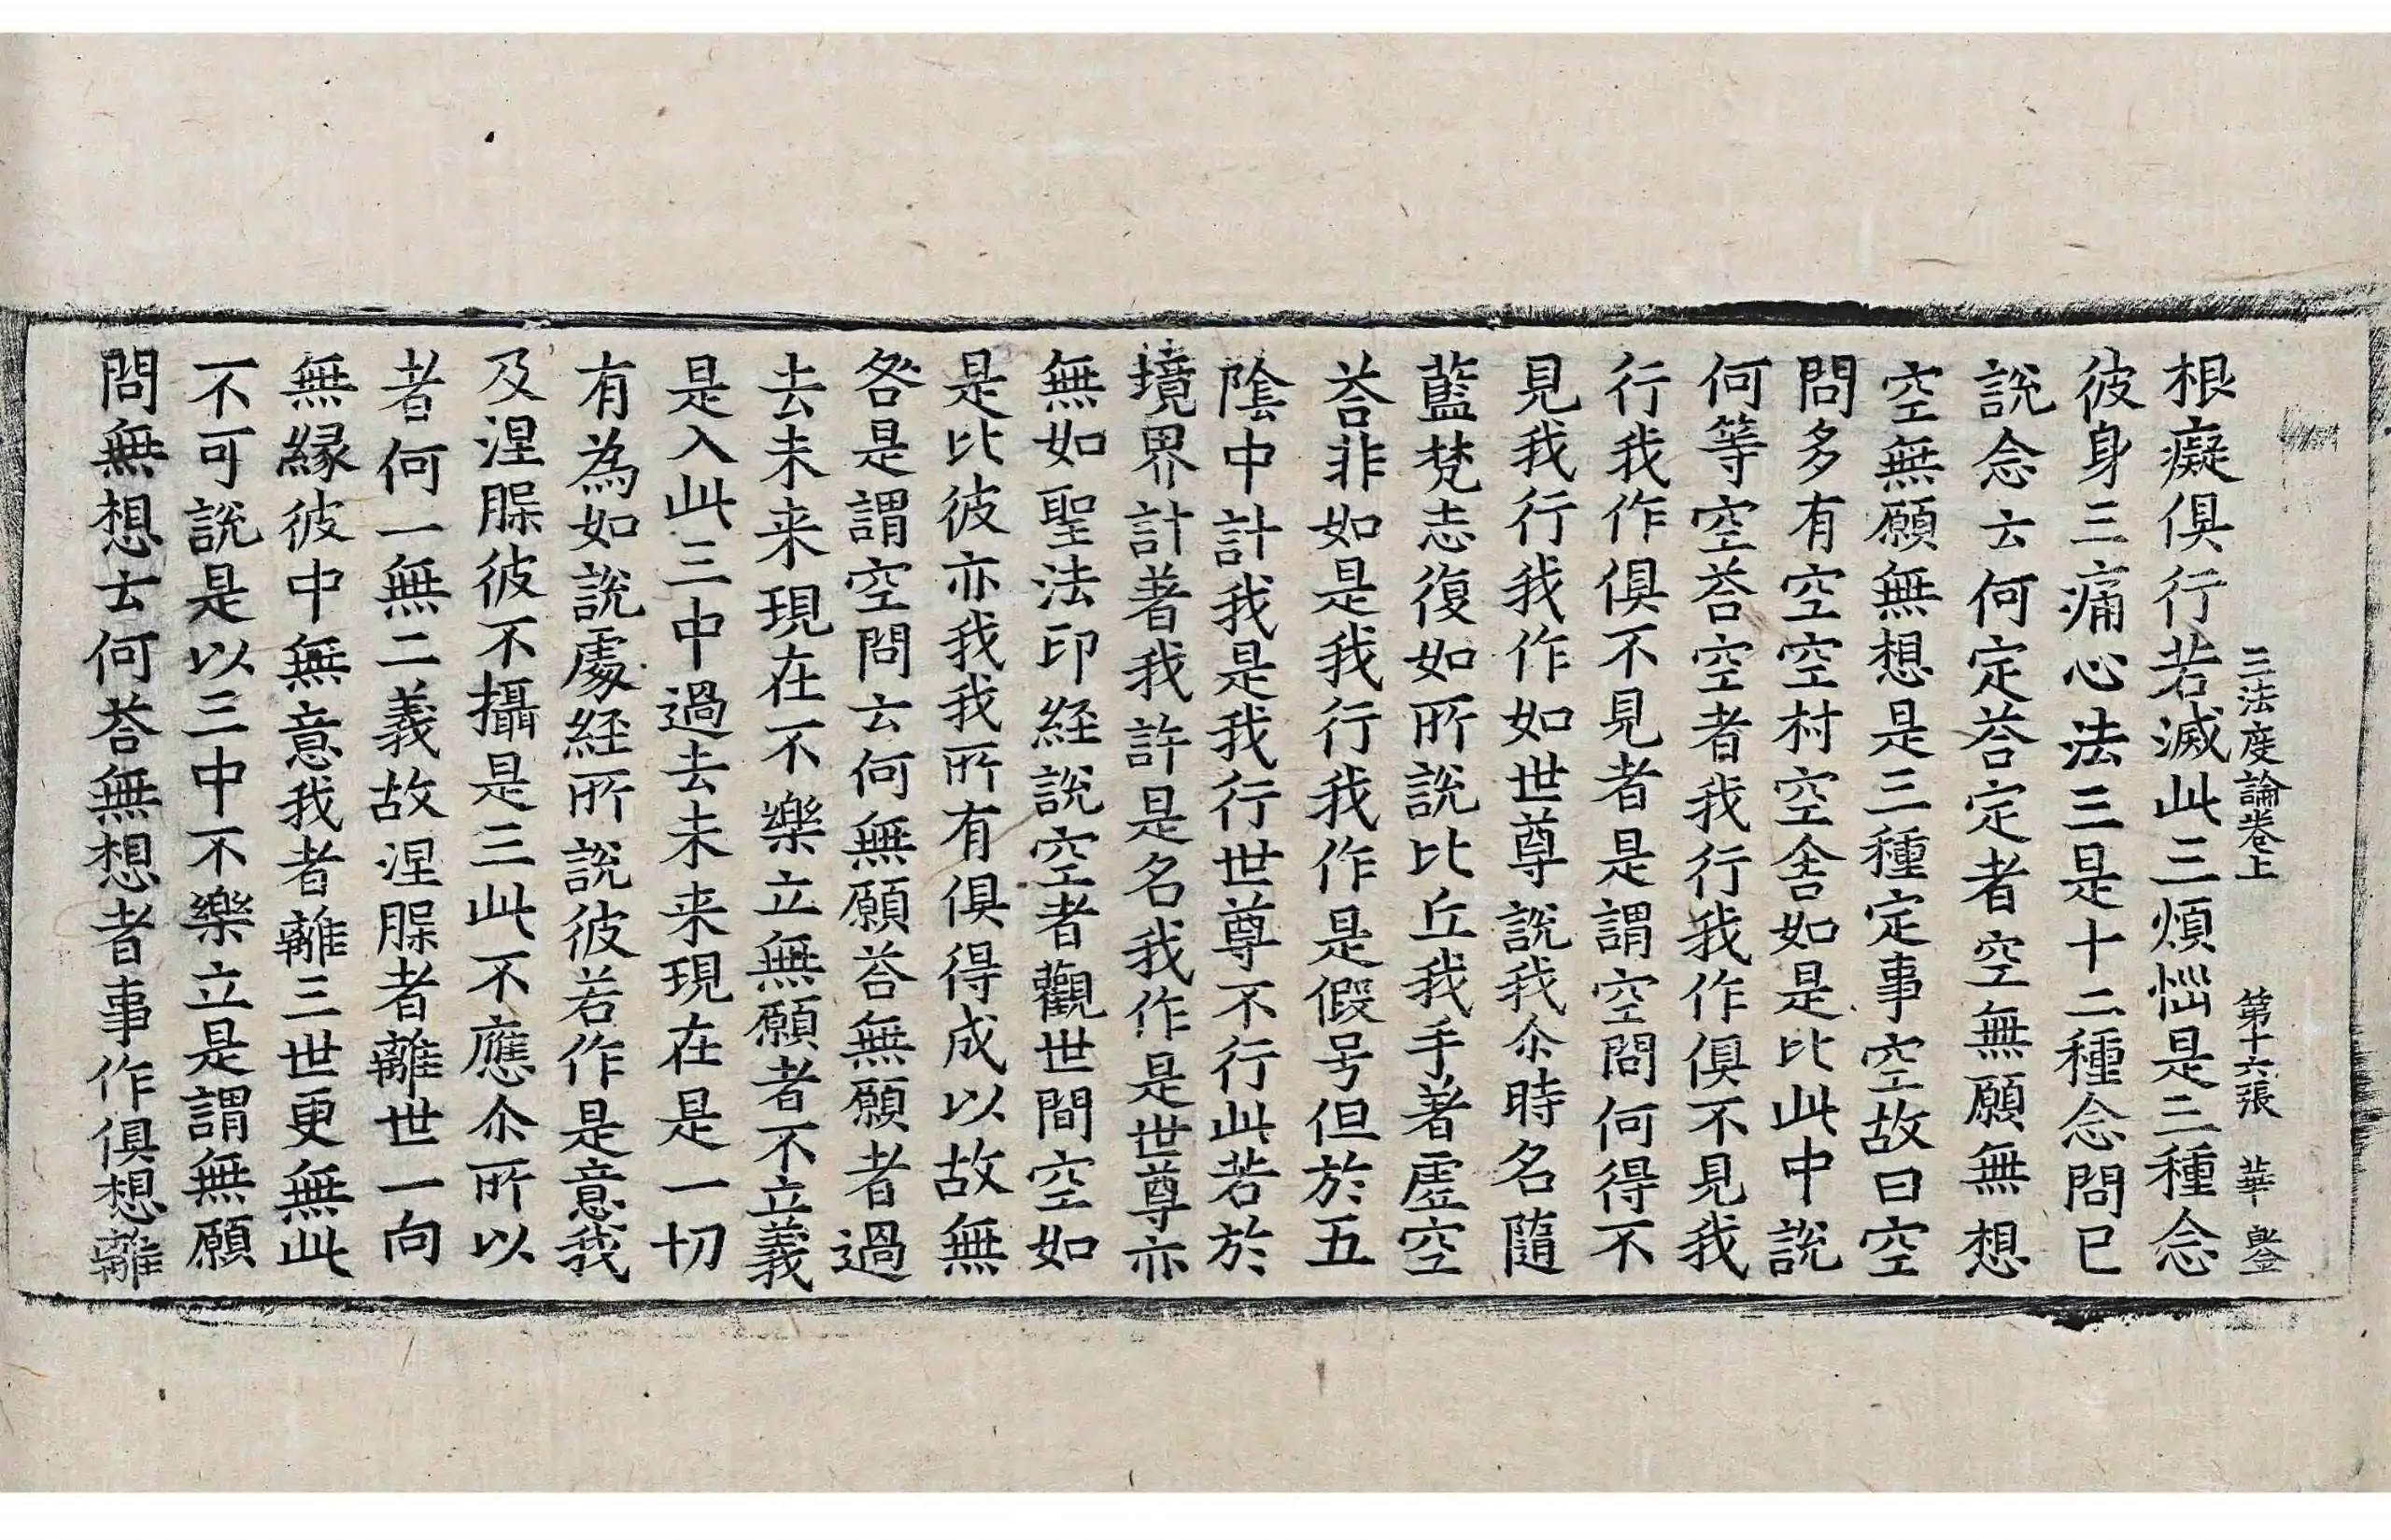 三法度論卷上　第十六張　華
根癡俱行若滅此三煩惱是三種念
彼身三痛心法三是十二種念問已
說念云何定荅定者空無願無想
空無願無想是三種定事空故曰空
問多有空空村空舍如是比此中說
何等空荅空者我行我作俱不見我
行我作俱不見者是謂空問何得不
見我行我作如世尊說我尒時名隨
藍梵志復如所說比丘我手著虛空
荅非如是我行我作是假号但於五
陰中計我是我行世尊不行此若於
境界計著我許是名我作是世尊亦
無如聖法印経說空者觀世間空如
是比彼亦我我所有俱得成以故無
咎是謂空問云何無願荅無願者過
去未来現在不樂立無願者不立義
是入此三中過去未来現在是一切
有為如說處経所說彼若作是意我
及涅槃彼不攝是三此不應尒所以
者何一無二義故涅槃者離世一向
無緣彼中無意我者離三世更無此
不可說是以三中不樂立是謂無願
問無想云何荅無想者事作俱想離